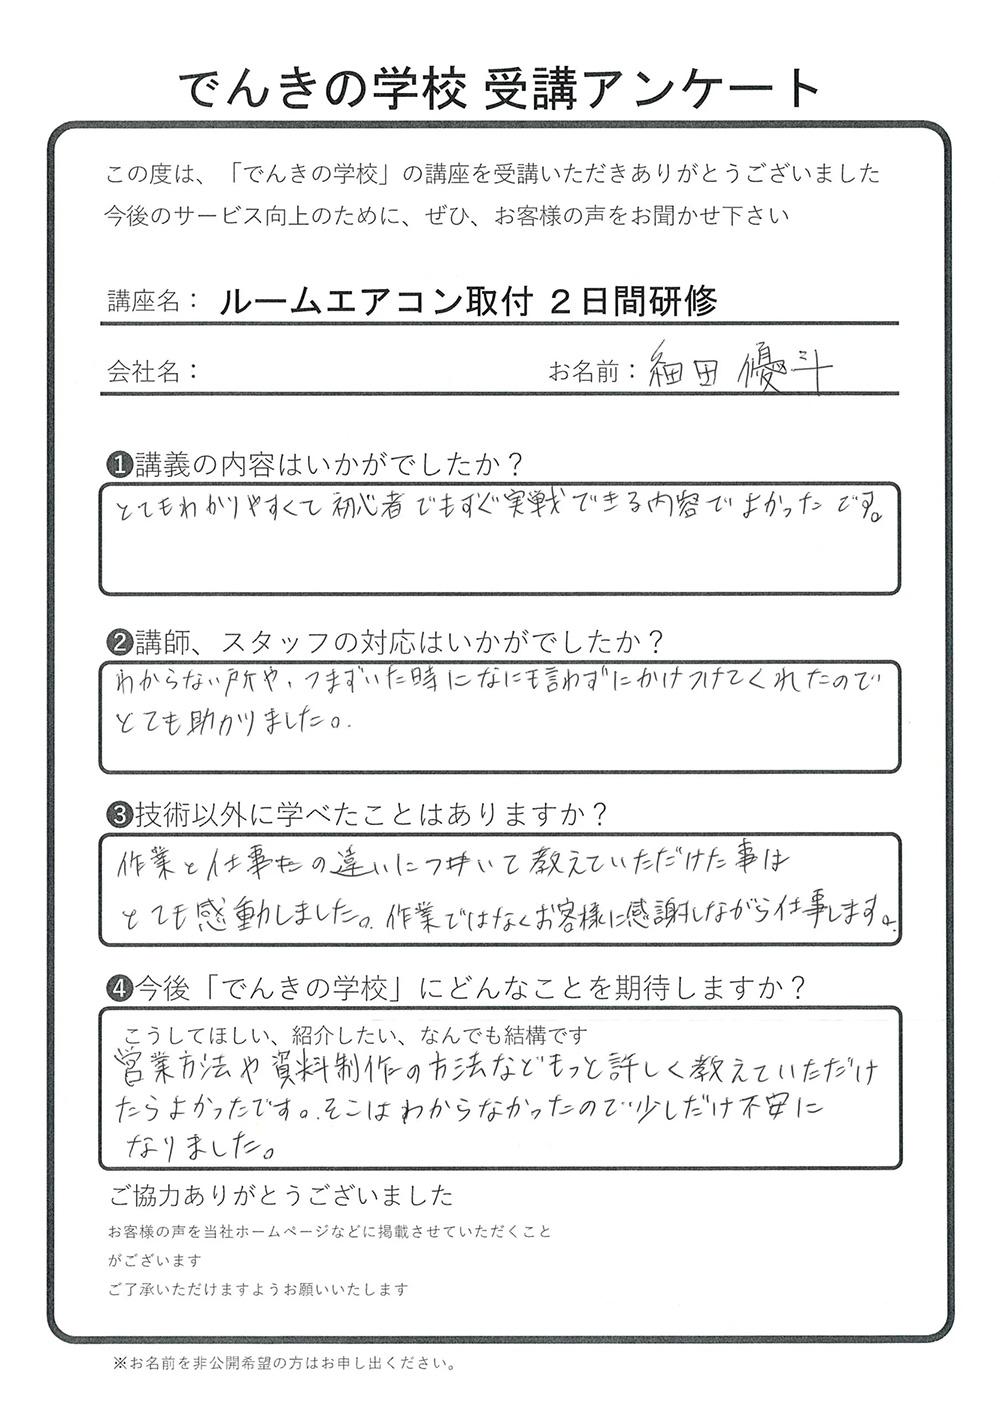 でんきの学校 受講アンケート
この度は、「でんきの学校」の講座を受講いただきありがとうございました
今後のサービス向上のために、ぜひ、お客様の声をお聞かせ下さい
講座名： ルームエアコン取付 2日間研修
会社名： お名前：細田 優斗
❶講義の内容はいかがでしたか？
とてもわかりやすくて初心者でもすぐ実戦できる内容でよかったです。
❷講師、スタッフの対応はいかがでしたか？
わからない所や、つまずいた時になにも言わずにかけつけてくれたので
とても助かりました。
❸技術以外に学べたことはありますか？
作業と仕事の違いについて教えていただけた事は
とても感動しました。作業ではなくお客様に感謝しながら仕事します。
❹今後「でんきの学校」にどんなことを期待しますか？
こうしてほしい、紹介したい、なんでも結構です
営業方法や資料制作の方法などもっと詳しく教えていただけ
たらよかったです。そこはわからなかったので少しだけ不安に
なりました。
ご協力ありがとうございました
お客様の声を当社ホームページなどに掲載させていただくこと
がございます
ご了承いただけますようお願いいたします
※お名前を非公開希望の方はお申し出ください。